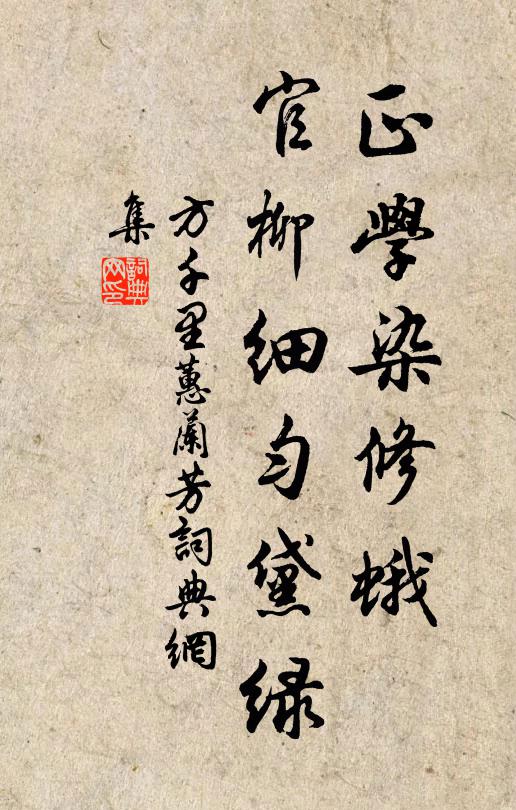 正學染修蛾
官柳細勻黛綠
方千里蕙蘭芳詞典網
集
詞典
网印